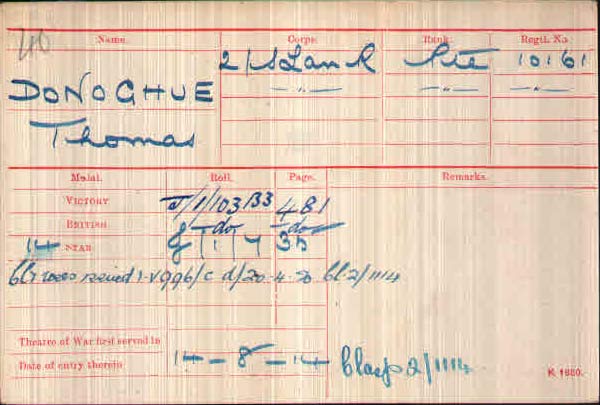 Name. Corps. Rank. Regtl. No.
2/S Lan R Pte 10161
DONOGHUE —"— —"— —"—
Thomas
Medal. Roll. Page. Remarks.
VICTORY J/1/103 B3 481
BRITISH do do
14 STAR 1/4 35
d/20-4-20 2/1114
Theatre of War first served in
Date of entry therein 14-8-14 Clasp 2/1114
K 1380.